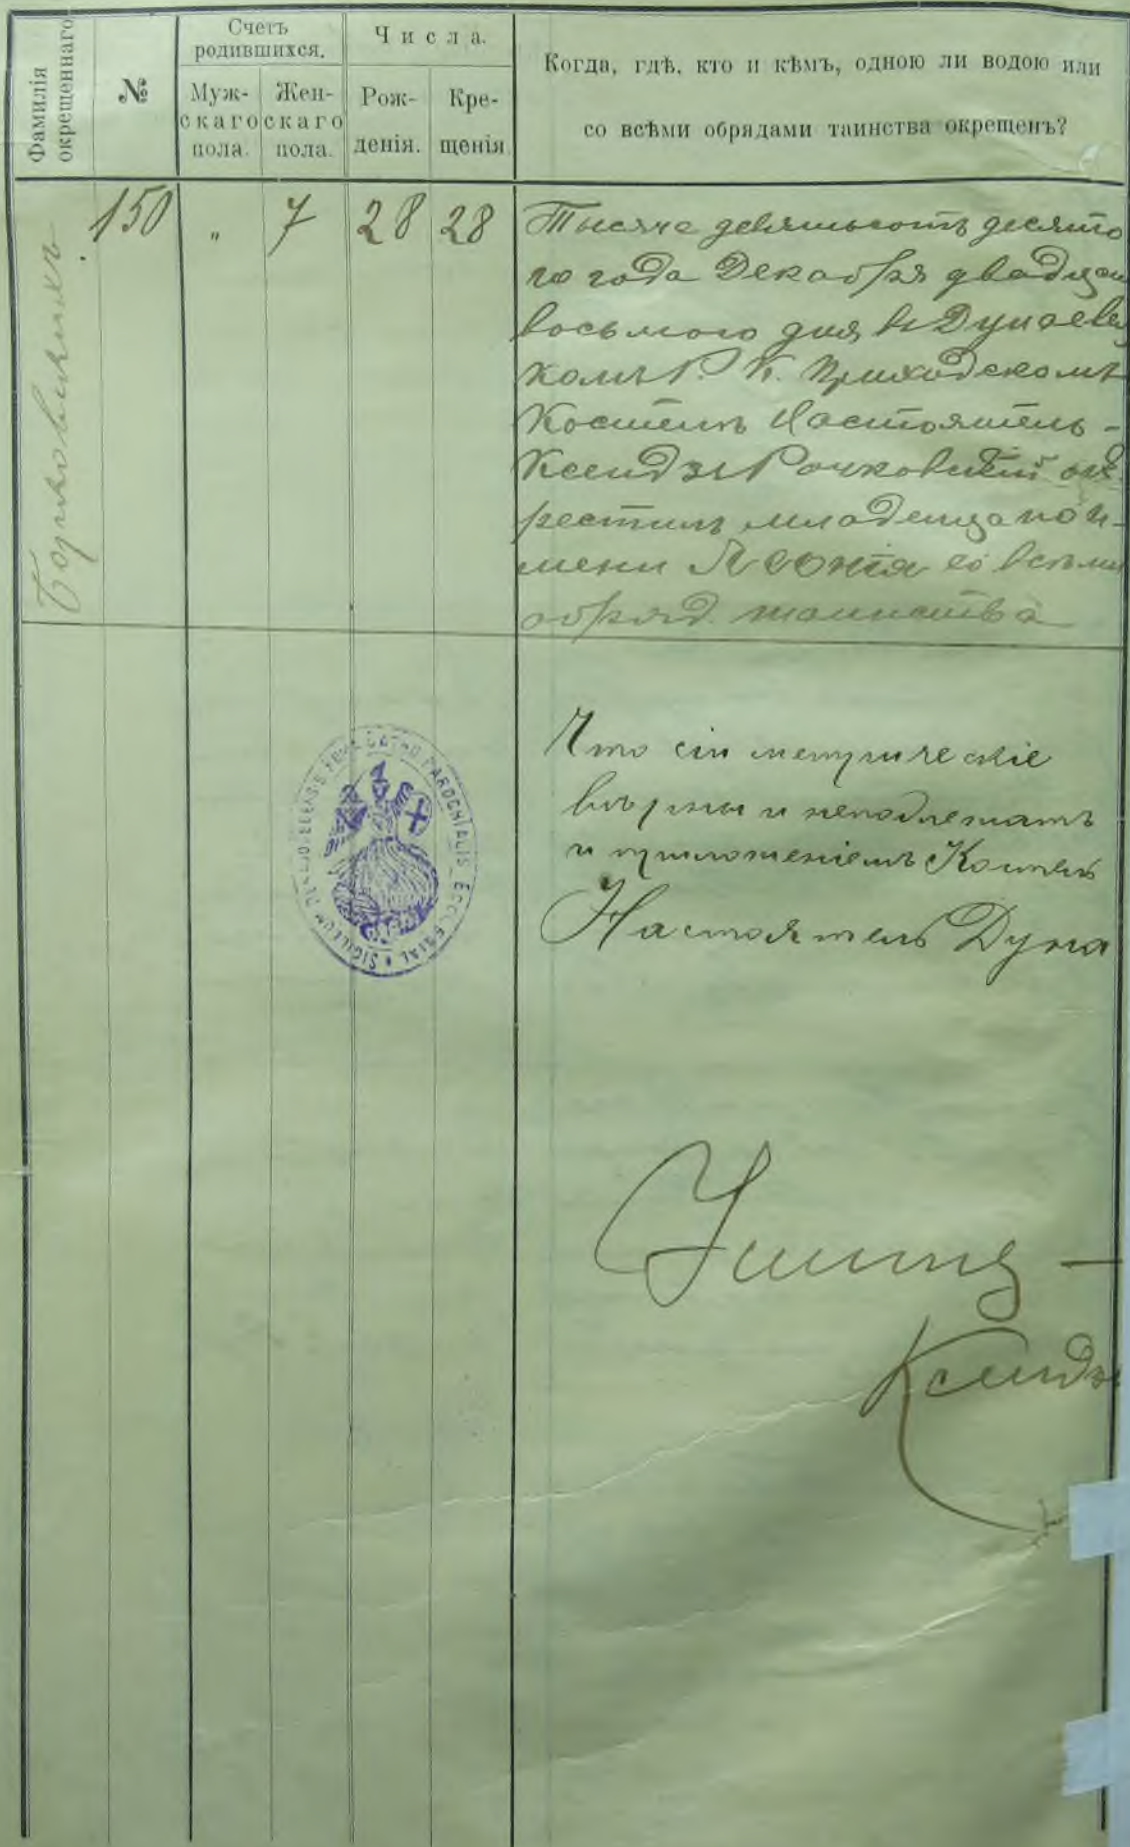 Фамилія
окрещеннаго
№
Счетъ
родившихся.
Муж-
скаго
пола.
Жен-
скаго
пола.
Числа.
Рож-
денія.
Кре-
щенія
Когда, гдѣ, кто и кѣмъ, одною ли водою или
со всѣми обрядами таинства окрещенъ?
150 " 7 28 28
Тысяча девятьсотъ десято
го года Декабря двадцать
восьмого дня въ Дунаевец
комъ Р. К. Приходскомъ
Костелѣ Настоятель-
Ксендзъ окъ
рестилъ младенца по и-
мени Леонія со всѣми
обряд. таинства
Что сіи метрическіе
вѣрны и
и приложеніемъ Костел
Настоятель Дуна
Ксендзъ
PAROCHIALIS ECCLESIAE • SIGILLUM